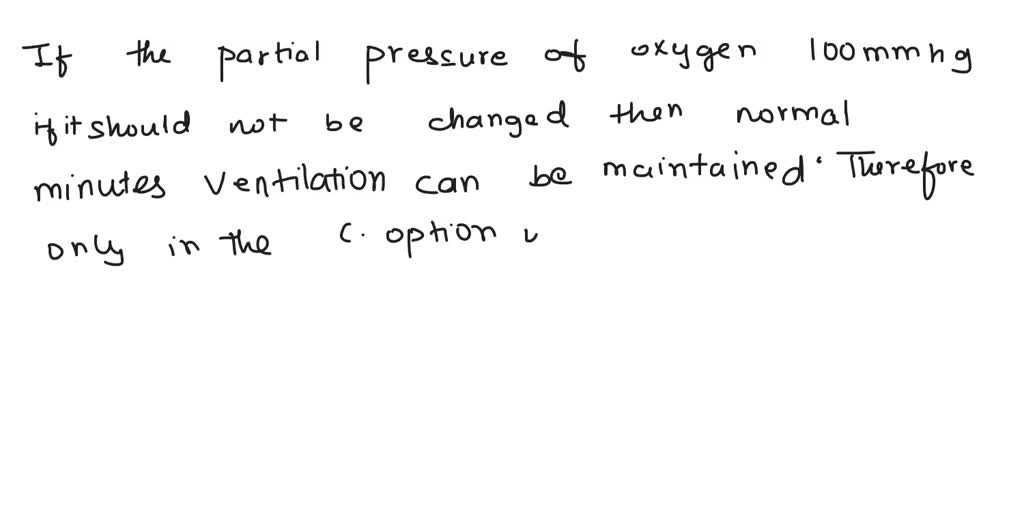 If the partial pressure of oxygen 100mmhg
if it should not be changed then normal
minutes ventilation can be maintained. Therefore
only in the C. option